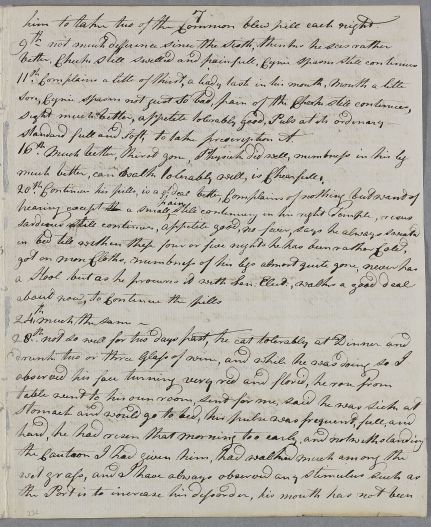 7
him to take two of the Common blew pill each night
9th not much difference since the sixth, thinks he sees rather
better, Cheek still swelled and painfull, Cynic spasms still continues
11th Complains a little of thirst, a bad taste in his mouth, Mouth a little
sore, Cynic spasms not quite so bad, pain of the Cheek still continues,
sight much better, appetite tolerably good, Pulse at its ordinary
standard full and soft, to take prescription A.
16th Much better, thirst gone, Physick did well, numbness in his leg
much better, can walk tolerably well, is Chearfull,
20th Continues his pills, is a gd deal better, Complains of nothing but want of
hearing except a small pain still continuing in his right temple, risus
sardonicus still continues, appetite good, no fever, says he always sweats
in bed till within these four or five nights he has been rather Cold,
got on more Cloths, numbness of his legs almost quite gone, never has
a Stool but as he procures it with Len. Elect, walks a good deal
about now, to Continue the pills
24th much the same
28th not so well for this days past, he eat tolerably at Dinner and
drunk two or three Glass of wine, and while he was doing so I
observed his face turning very red and florid, he rose from
table went to his own room, sent for me, said he was sick at
Stomach and would go to bed, his pulse was frequent, full, and
hard, he had risen that morning too early, and notwithstanding
the Caution I had given him, had walked much among the
wet grass, and I have always observed any stimulus such as
the Port is to increase his disorder, his mouth has not been